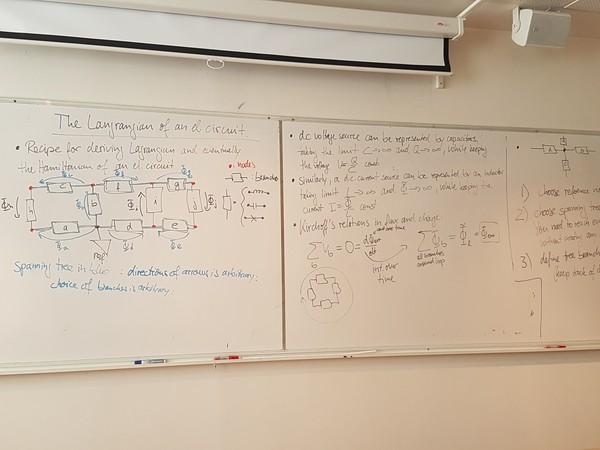 The Langrangian of an el circuit
• Recipe for deriving Lagrangian and eventually
the Hamiltonian of an el. circuit
• nodes
Branches
c f g
b
a d e
ref
Spanning tree in blue : directions of arrows is arbitrary.
choice of branches is arbitrary
• dc voltage source can be represented by capacitors,
taking the limit C→∞ and Q→∞, while keeping
the voltage V= Q/C const
• Similarly, a dc current source can be represented by an inductor
taking limit L→∞ and Φ→∞, while keeping the
current I = Φ/L const
• Kirchoff's relations in flux and charge
all branches
around loop
int. over
time
1) choose reference
2) choose spanning tree
you need to reach
3) define tree branches